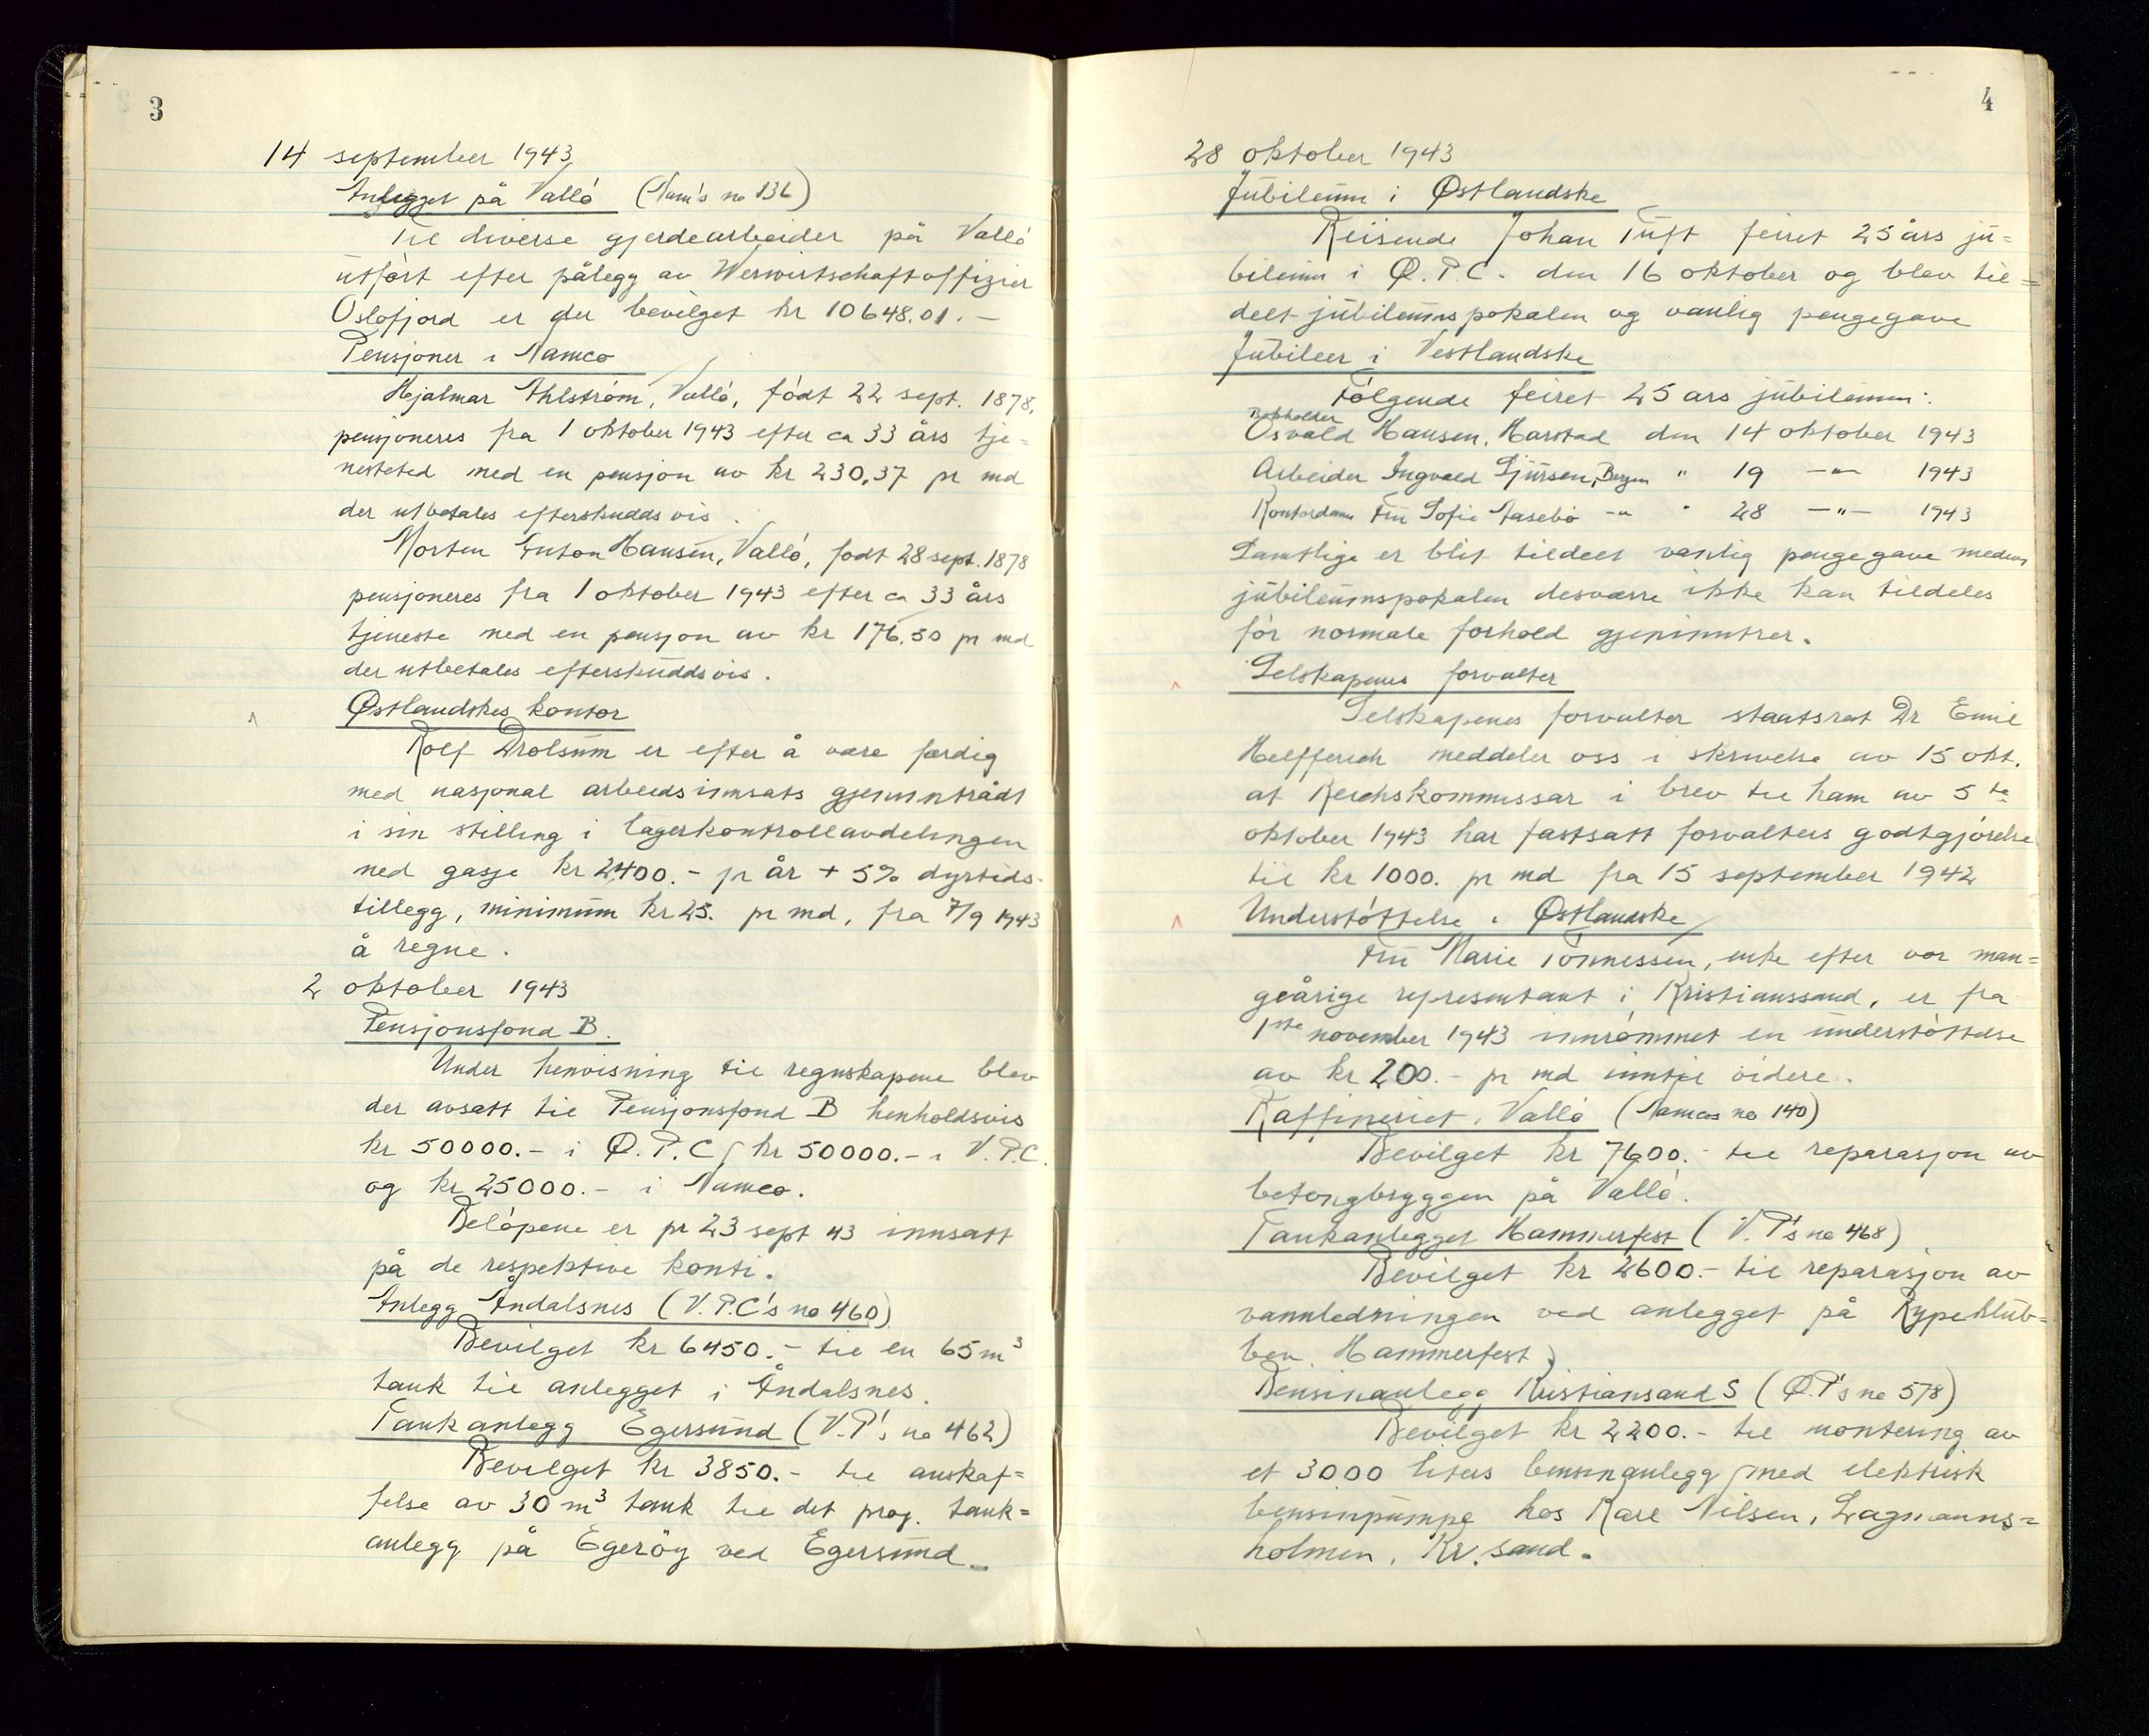 3
14 september 1943
Anlegget på Valló (Nam's no 136)
Til diverse gjerdearbeider på Valló
utfórt efter pålegg av Werwirtschaftoffizier
Oslofjord er der bevilget kr 10648.01.-
Pensjoner i Namco
Hjalmar Ahlstróm, Valló, fódt 22 sept. 1878,
pensjoneres fra 1 oktober 1943 efter ca 33 års tje-
nestetid med en pensjon av kr 230,37 pr md
der utbetales efterskuddsvis.
Morten Anton Hansen, Valló, fodt 28 sept. 1878
pensjoneres fra 1 oktober 1943 efter ca 33 års
tjeneste med en pensjon av kr 176.50 pr md
der utbetales efterskuddsvis.
Østlandskes kontor
Rolf Drolsum er efter å være færdig
med nasjonal arbeidsinnsats gjeninntrådt
i sin stilling i lagerkontrollavdelingen
med gasje kr 2400.- pr år + 5% dyrtids-
tillegg, minimum kr 25. pr md, fra 7/9 1943
å regne.
2 oktober 1943
Pensjonsfond B.
Under henvisning til regnskapene blev
der avsatt til Pensjonsfond B henholdsvis
kr 50000.- i Ø.P.C, kr 50000.- i V.P.C.
og kr 25000.- i Namco.
Belópene er pr 23 sept 43 innsatt
på de respektive konti.
Anlegg Åndalsnes (V.P.C's no 460)
Bevilget kr 6450.- til en 65 m³
tank til anlegget i Åndalsnes.
Tankanlegg Egersund (V.P's no 462)
Bevilget kr 3850.- til anskaf=
felse av 30 m³ tank til det proj. tank=
anlegg på Egeröy ved Egersund.
4
28 oktober 1943
Jubileum i Østlandske
Reisende Johan Tuft feiret 25 års ju=
bileum i Ø.P.C. den 16 oktober og blev til=
delt jubileumspokalen og vanlig pengegave
Jubileer i Vestlandske
Fólgende feiret 25 ars jubileum:
Bokholder
Osvald Hansen, Harstad den 14 oktober 1943
Arbeider Ingvald Sjursen, Bergen " 19 -"- 1943
Kontordame Frü Sofie Aasebó -"- " 28 -"- 1943
Samtlige er blit tildelt vanlig pengegave medens
jubileumspokalen desværre ikke kan tildeles
fór normale forhold gjeninntrer.
Selskapenes forvalter
Selskapenes forvalter staatsrat Dr Emil
Helfferich meddeler oss i skrivelse av 15 okt.
at Reichskommissar i brev til ham av 5te
oktober 1943 har fastsatt forvalters godtgjórelse
til kr 1000. pr md fra 15 september 1942
Understóttelse i Østlandske
Fru Marie Tónnessen, enke efter vor man=
geårige representant i Kristianssand, er fra
1ste november 1943 innrómmet en understóttelse
av kr 200.- pr md inntil videre.
Raffineriet, Valló (Namcos no 140)
Bevilget kr 7600.- til reparasjon av
betongbryggen på Valló.
Tankanlegget Hammerfest (V.P's no 468)
Bevilget kr 2600.- til reparasjon av
vannledningen ved anlegget på Rypeklub=
ben, Hammerfest.
Bensinanlegg Kristiansand S (Ø.P's no 578)
Bevilget kr 2200.- til montering av
et 3000 liters bensinanlegg med elektrisk
bensinpumpe hos Kåre Nilsen, Lagmanns=
holmen, Kr.sand.